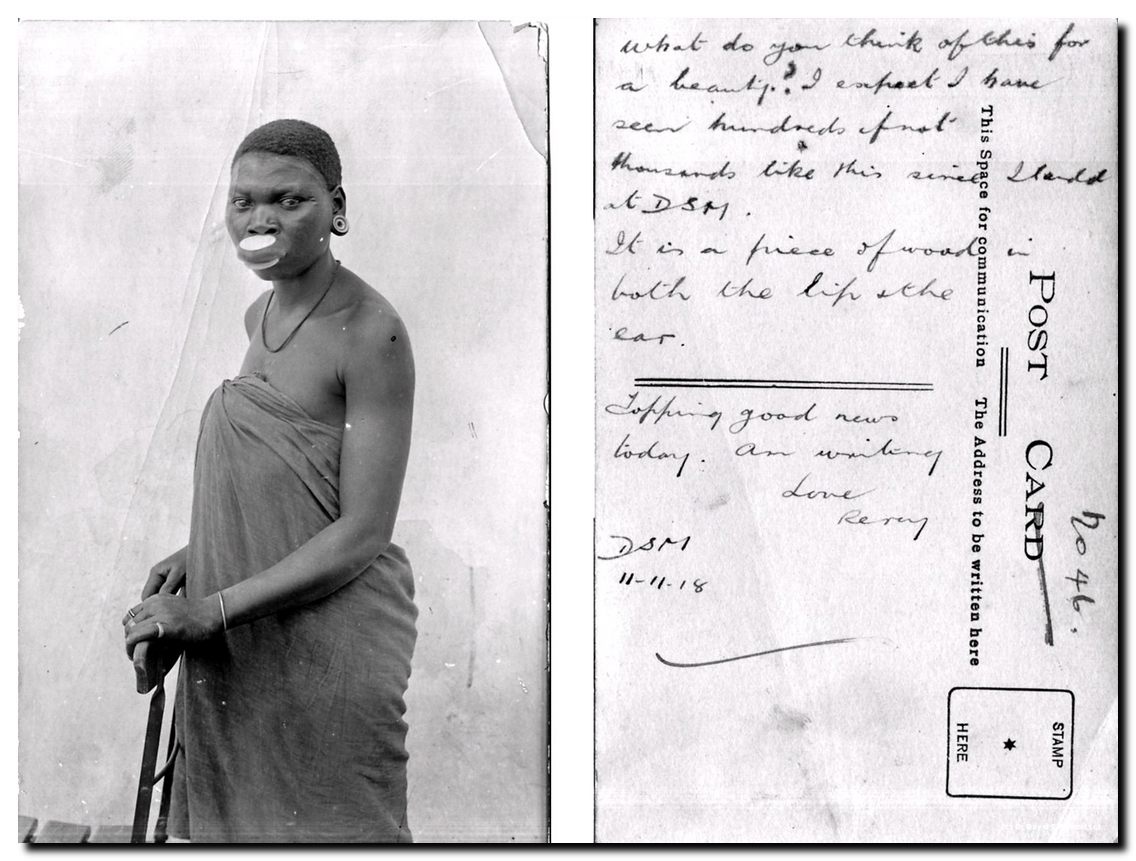 what do you think of this for
a beauty? I expect I have
seen hundreds if not
thousands like this since I landd
at DSM.
It is a piece of wood in
both the lip & the
ear.
Topping good news
today. Am writing
Love
Percy
DSM
11-11-18
This Space for communication The Address to be written here
POST CARD
No 46.
STAMP
HERE